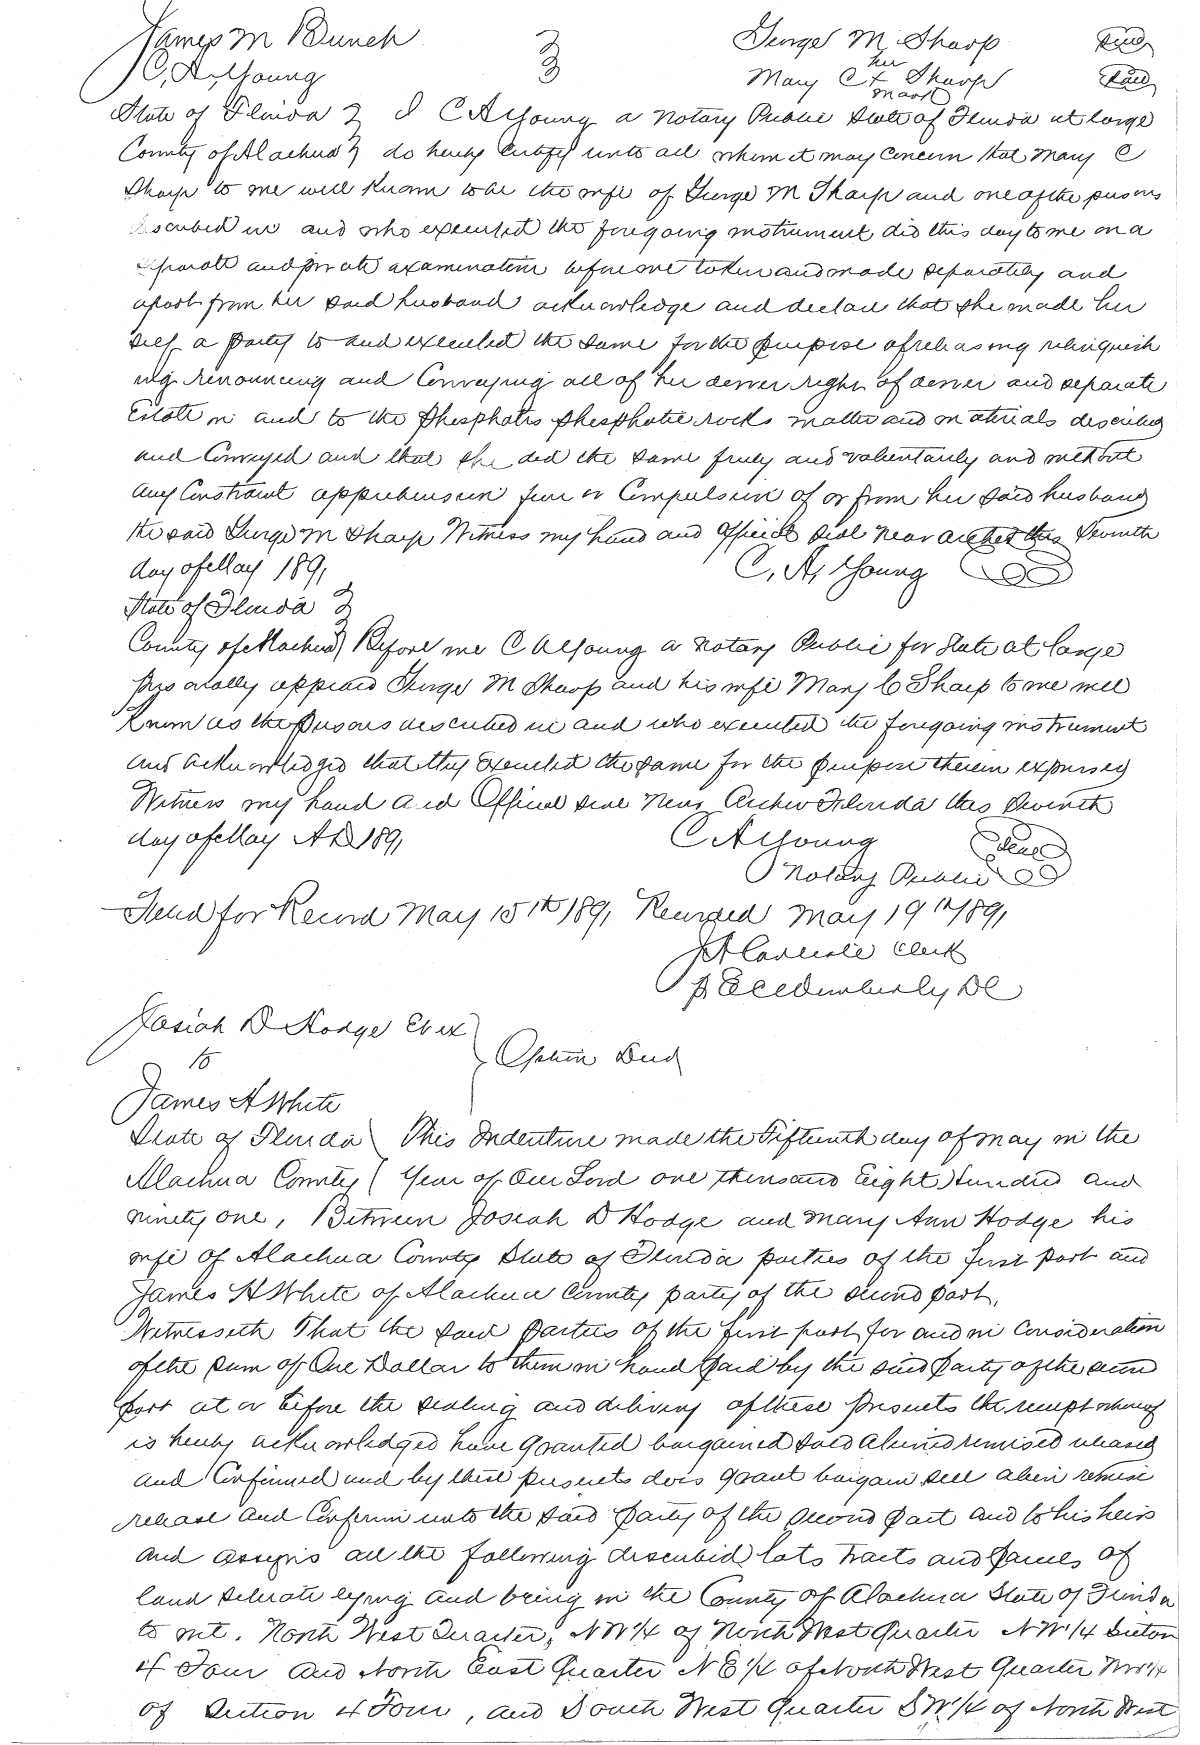 James M Bunch George M Sharp Seal
C, A, Young Mary C her x mark Sharp Seal
State of Florida } I C A Young a Notary Public State of Florida at large
County of Alachua } do hereby certify unto all whom it may concern that Mary C
Sharp to me well known to be the wife of George M Sharp and one of the persons
described in and who executed the foregoing instrument did this day to me on a
separate and private examination before me taken and made separately and
apart from her said husband acknowledge and declare that she made her
self a party to and executed the same for the purpose of releasing relinquish
ing renouncing and Conveying all of her dower right of dower and separate
Estate in and to the Phosphates phosphatic rocks matter and materials described
and Conveyed and that she did the same freely and voluntarily and without
any Constraint apprehension fear or Compulsion of or from her said husband
the said George M Sharp Witness my hand and official seal near Archer this Seventh
day of May 1891
C, A, Young
State of Florida }
County of Alachua } Before me C A Young a Notary Public for State at large
personally appeared George M Sharp and his wife Mary C Sharp to me well
known as the persons described in and who executed the foregoing instrument
and acknowledged that they executed the same for the purpose therein expressed
Witness my hand and Official seal near Archer Florida this seventh
day of May A D 1891 C A Young Seal
Notary Public
Filed for Record May 15th 1891 Recorded May 19th 1891
J A Carlisle Clerk
Wimberly DC
Josiah D Hodge Et ux
to } Option Deed
James H White
State of Florida ( This Indenture made the Fifteenth day of May in the
Alachua County ( Year of Our Lord one thousand Eight Hundred and
ninety one, Between Josiah D Hodge and Mary Ann Hodge his
wife of Alachua County State of Florida parties of the first part and
James H White of Alachua County party of the second part,
Witnesseth That the said parties of the first part for and in consideration
of the sum of One Dollar to them in hand paid by the said party of the second
part at or before the sealing and delivery of these presents the receipt whereof
is hereby acknowledged have granted bargained sold aliened remised released
and Confirmed and by these presents does grant bargain sell alien remise
release and Confirm unto the said party of the second part and to his heirs
and assigns all the following described lots tracts and parcels of
land situate lying and being in the County of Alachua State of Florida
to wit. North West Quarter, NW 1/4 of North West Quarter NW 1/4 Section
4 Four and North East Quarter NE 1/4 of North West Quarter NW 1/4
of Section 4 Four, and South West Quarter SW 1/4 of North West